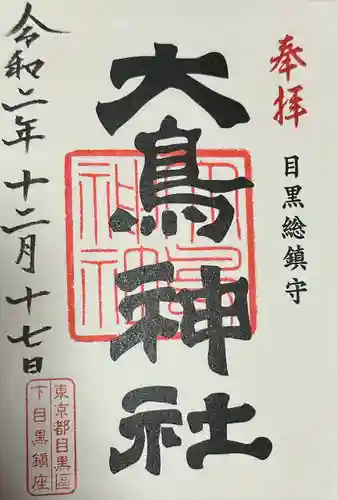 奉拝
目黒総鎮守
大鳥神社
令和二年十二月十七日
東京都目黒區
下目黒鎮座